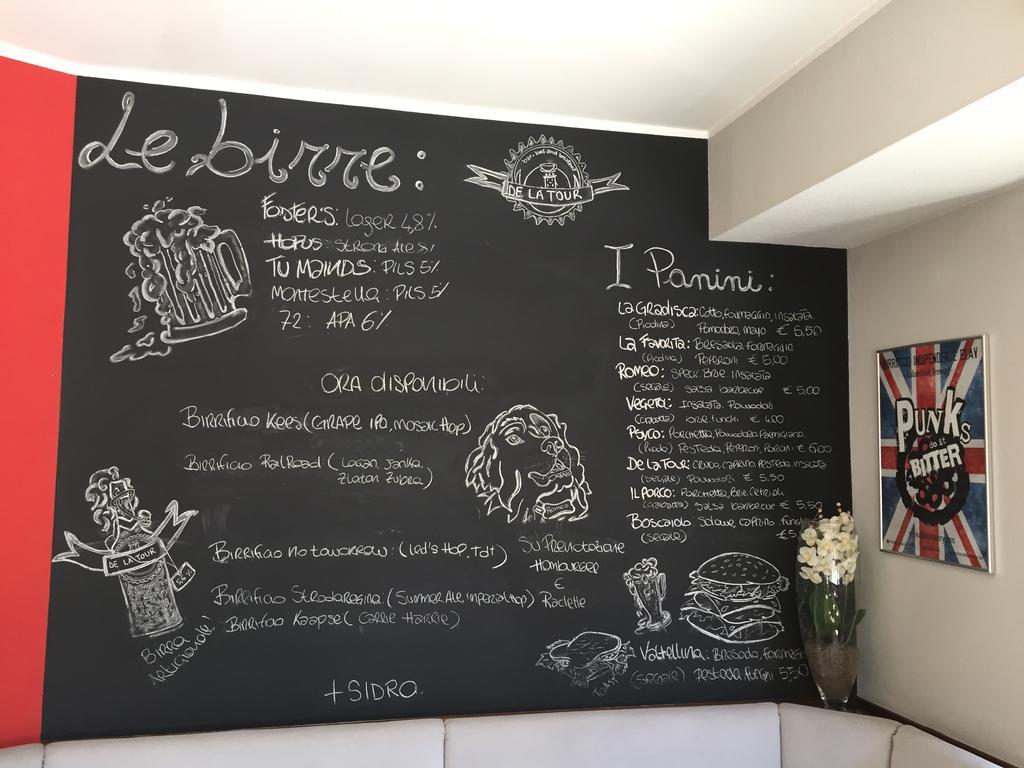 Le birre:
FOSTER'S: LAGER 4,8%
HOPUS: STRONG ALE 5%
TU MAINDS: PILS 5%
Montestella: PILS 5%
72: APA 6%
ORA DISPONIBILI:
Birrificio Kees (GRAPE IPA, mosaic Hop)
Birrificio RailRoad (Logan, Janka,
Zlatan Zubra)
Birrificio no tomorrow: (Led's Hop, Tdt)
Birrificio Stradaregina (Summer Ale, imperial Hop)
Birrificio Kaapse (Carrie Harrie)
+ SIDRO.
DE LA TOUR
BIRRA
ARTIGIANALE!
DE LA TOUR
Romeo
SU PRENOTAZIONE
HAMBURGER
E
Raclette
I Panini:
La Gradisca: Cotto, formaggio, insalata
(Piadina) Pomodoro, mayo € 6,50
La Favorita: Bresaola Formaggio
(Piadina) Peperoni € 5,00
Romeo: Speck Brie Insalata
(segale) salsa barbecue € 5,00
Vegeta: Insalata Pomodori
funghi € 4,00
Psyco: Porchetta, Pomodoro, Parmigiano,
€ 6,00
De la Tour: crudo, caprino, pesteda, insalata
(segale) Pomodori € 5,50
Il Porco: Porchetta, Brie, Cetrioli
salsa barbecue € 5,50
Boscaiolo: Salame Caprino
(segale) €5
Valtellina: Bresaola, formaggio
(segale) pesteda funghi 5,50
BIRRIFICIO INDIPENDENTE ELAV
PUNKS
do it
BITTER